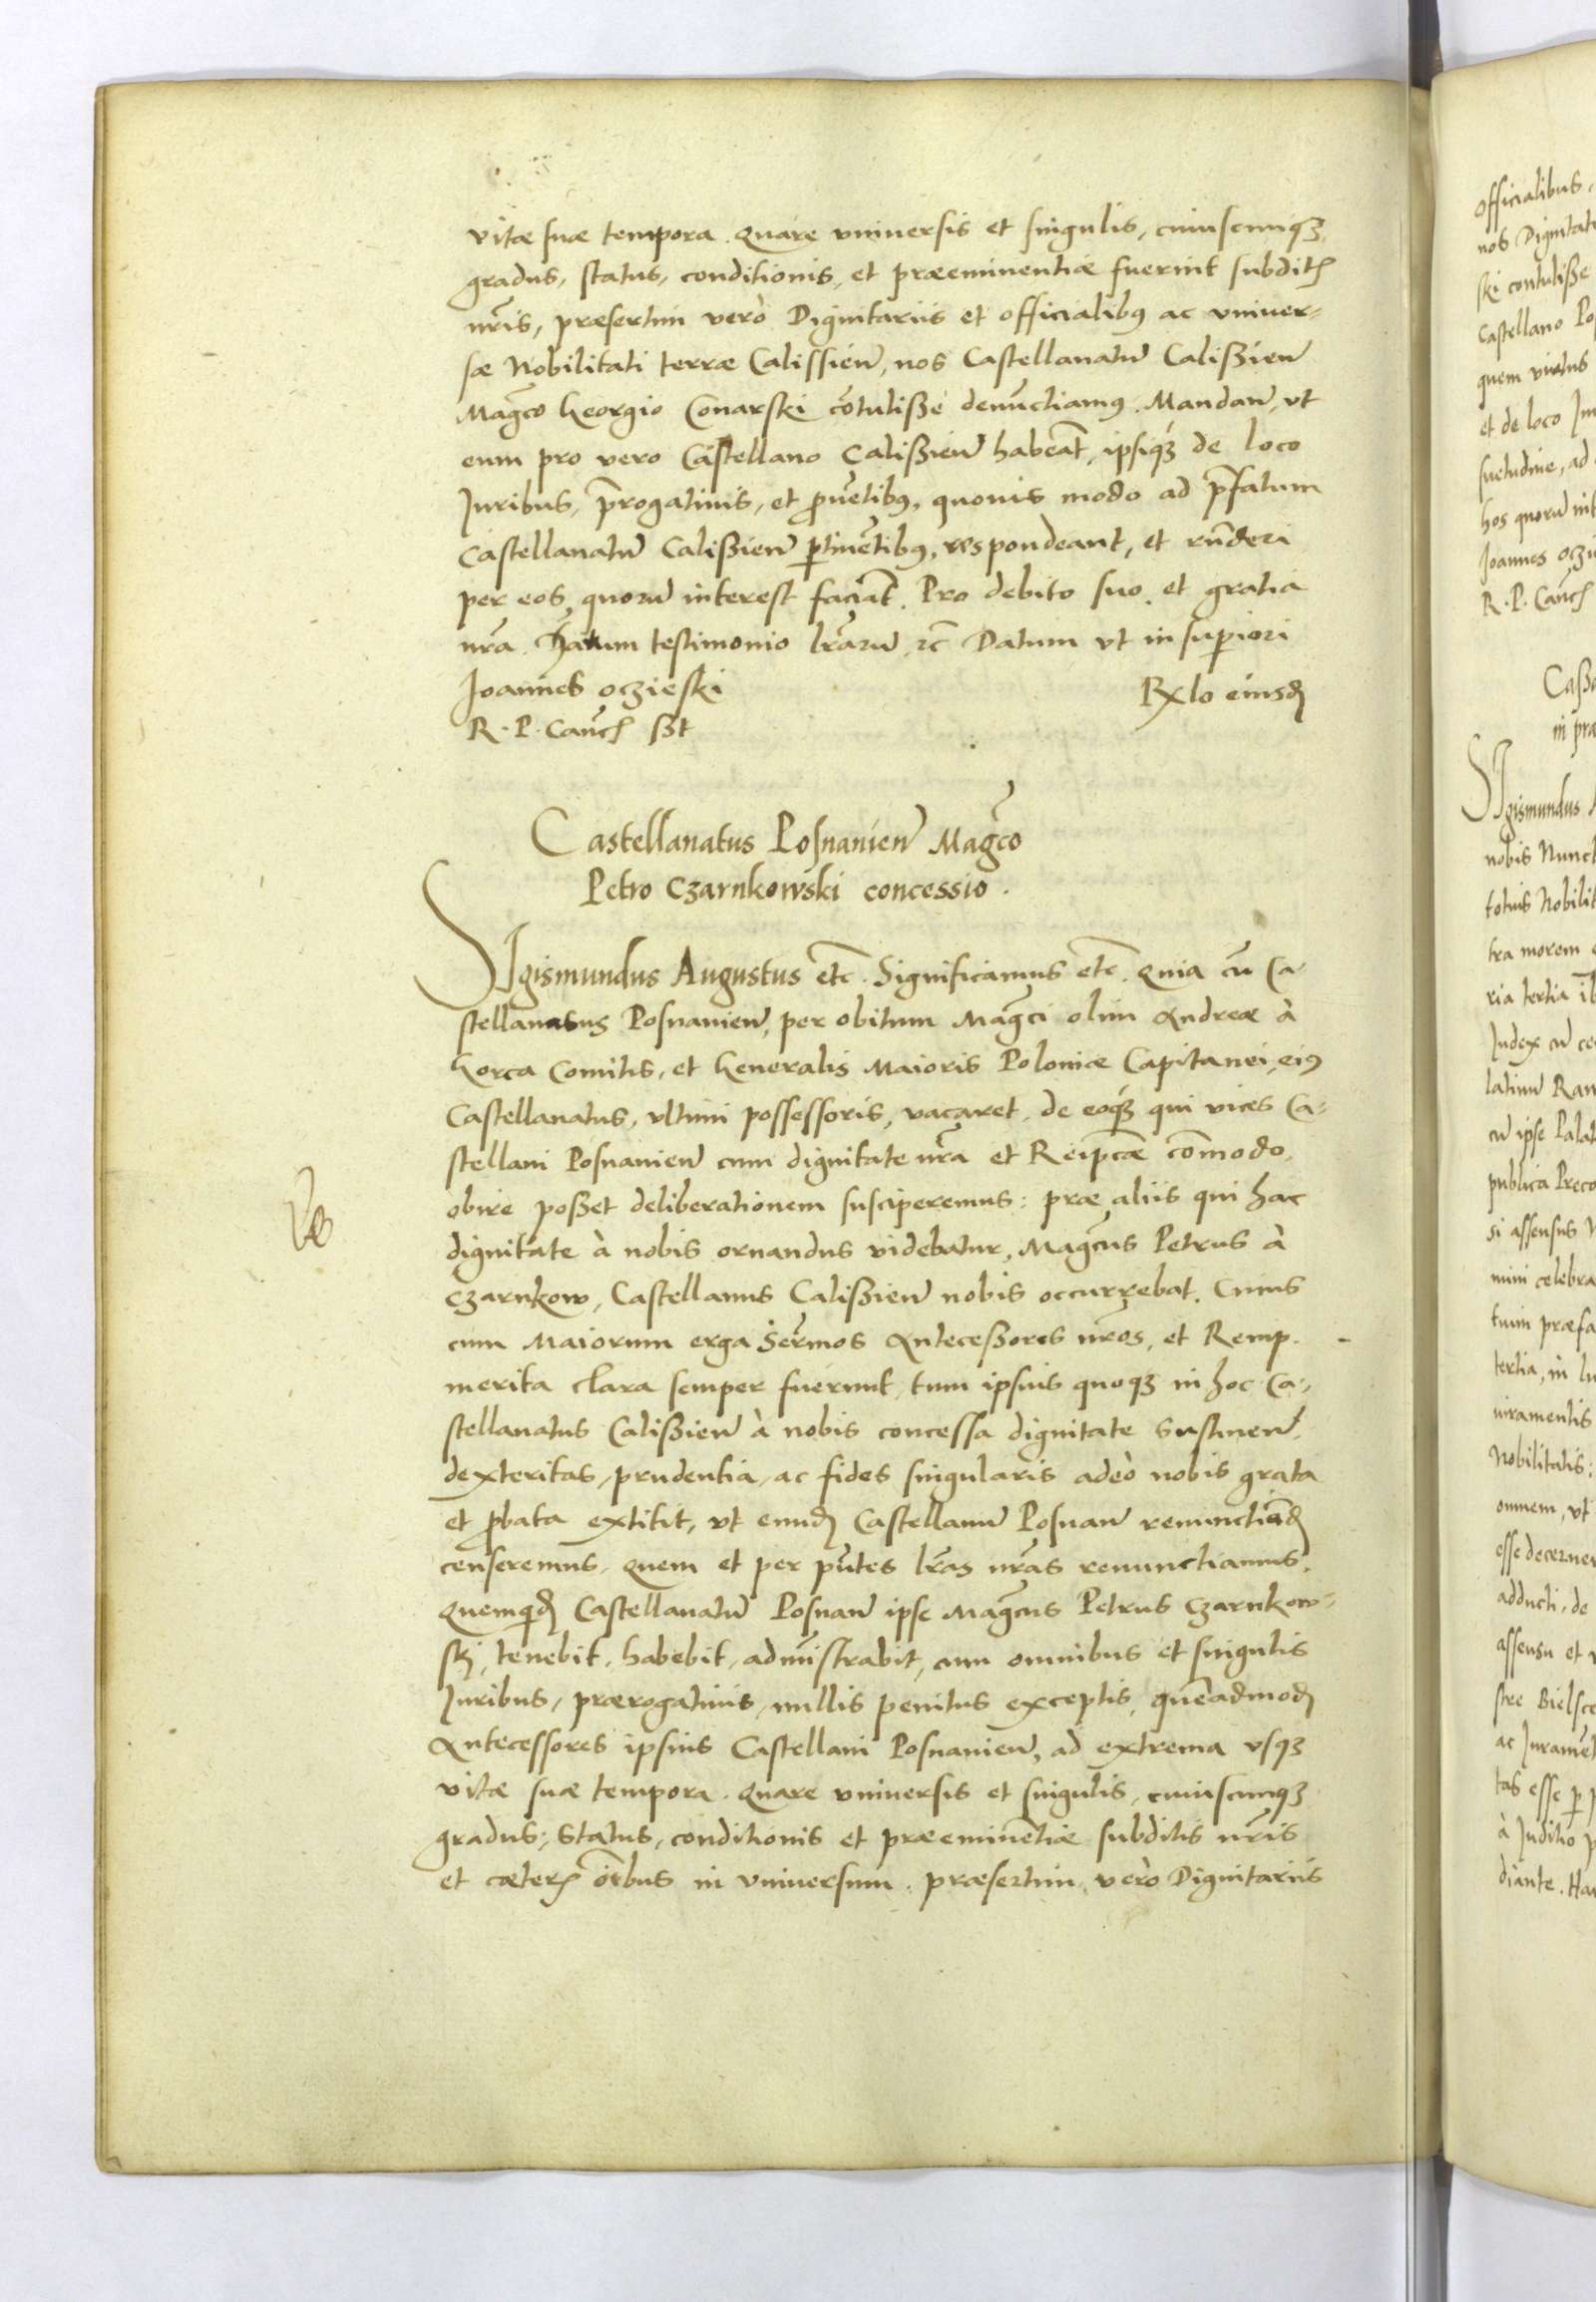 vitæ suæ tempora. Quare vniuersis et singulis, cuiuscunqꝫ
gradus, status, conditionis, et præeminentiæ fuerint subditꝭ
nr̃is, præsertim verò Dignitariis et officialibꝰ ac vniuer-
sæ Nobilitati terræ Calissien̄, nos Castellanatū Calißien̄
Mag͠co Georgio Conarski cōtuliße denūctiamꝰ. Mandan̄, vt
eum pro vero Castellano Calißien̄ habeāt, ipsiqꝫ de loco
Juribus, p̄rogatiuis, et ꝓuētibꝰ, quouis modo ad p̄fatum
Castellanatū Calißien̄ ꝑtinētibꝰ, respondeant, et rn̄deri
per eos, quorū interest faciāt. Pro debito suo, et gratia
nr̃a. Harum testimonio lr̃arū, ꝛc̃ Datum vt in superiori
Joannes oczieski
R. P. Canc̃ ßt
Rx̃lo eiusd̃
Castellanatus Posnanien̄ Mag͠co
Petro Czarnkowski concessio.
SIgismundus Augustus etc̃. Significamus etc̃. Quia cū Ca-
stellanatus Posnanien̄, per obitum Mag͠ci olim Andreæ à
Gorca Comitis, et Generalis Maioris Poloniæ Capitanei, eiꝰ
Castellanatus, vltimi possessoris, vacaret, de eoqꝫ qui vices Ca-
stellani Posnanien̄ cum dignitate nr̃a et Reip͠cæ cōmodo,
obire poßet deliberationem susciperemus: præ aliis qui hac
dignitate à nobis ornandus videbatur, Mag͠cus Petrus à
Czarnkow, Castellanus Calißien̄ nobis occurrebat. Cuius
cum Maiorum erga Ser̃mos Anteceßores nr̃os, et Remp.
merita clara semper fuerunt, tum ipsius quoqꝫ in hoc Ca-
stellanatus Calißien̄ à nobis concessa dignitate sustinen̄
dexteritas, prudentia, ac fides singularis adeò nobis grata
et ꝓbata extitit, vt eund̃ Castellanū Posnan̄ renunctiand̃
censeremus. Quem et per pn̄tes lr̃as nr̃as renunctiamus.
Quemquid̃ Castellanatū Posnan̄ ipse Mag͠cus Petrus Czarnkow-
ski, tenebit, habebit, admīstrabit, cum omnibus et singulis
Juribus, prærogatiuis, nullis penitus exceptis, quēadmod̃
Antecessores ipsius Castellani Posnanien̄, ad extrema vsqꝫ
vitæ suæ tempora. Quare vniuersis et singulis, cuiuscunqꝫ
gradus, status, conditionis et præeminētiæ subditis nr̃is
et cæterꝭ oīb̃us in vniuersum, præsertim verò Dignitariis
officialibus,
nos Dignitat
ski contuliße
Castellano Po
quem virtus
et de loco
suetudine, ad
hos quorū
Joannes
R. P. Canc̃
Caßa
in præ
SIgismundus
nobis Nunc
totius Nobilit
tra morem
ria tertia
Judex
latinū Ran
cū ipse Palat
publica Preco
si assensus
mini celebra
tum præfa
tertia, in
iuramentis
Nobilitatis:
omnem, vt
esse decerne
adducti, de
assensu et
stre Bielsce
ac Juramē
tas esse ꝑ
à Juditio
diante. Ha